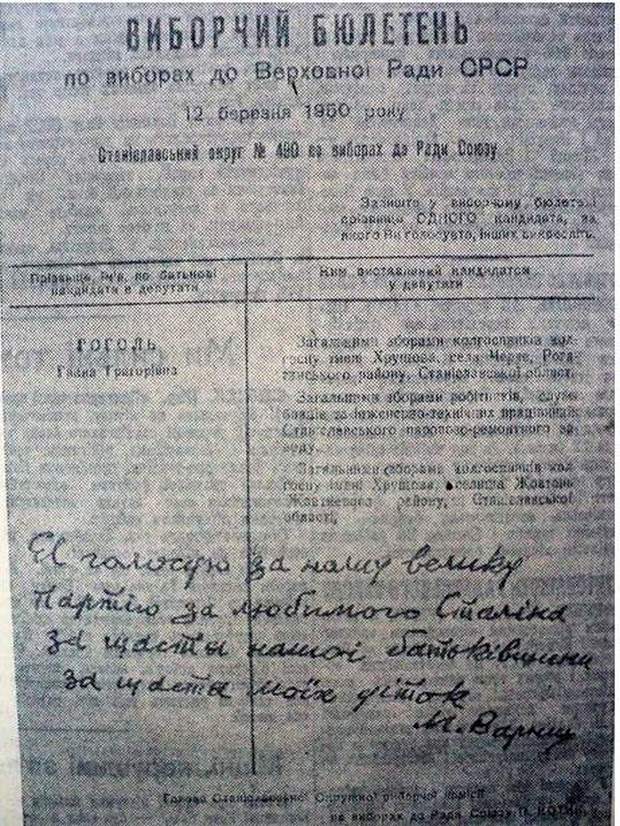 ВИБОРЧИЙ БЮЛЕТЕНЬ
по виборах до Верховної Ради СРСР
12 березня 1950 року
Станіславський округ № 490 по виборах до Ради Союзу
Залиште у виборчому бюлетені
прізвище ОДНОГО кандидата, за
якого Ви голосуєте, інших викресліть.
Прізвище, ім'я, по батькові
кандидата в депутати
Ким виставлений кандидатом
у депутати
ГОГОЛЬ
Ганна Григорівна
Загальними зборами колгоспників кол-
госпу імені Хрущова, села Черче, Рога-
тинського району, Станіславської області.
Загальними зборами робітників, служ-
бовців та інженерно-технічних працівників
Станіславського паровозо-ремонтного за-
воду.
Загальними зборами колгоспників кол-
госпу імені Хрущова, селища Жовтень
Жовтневого району, Станіславської
області,
Я голосую за нашу велику
партію за любимого Сталіна
за щастя нашої батьківщини
за щастя моїх діток
М.
Голова Станіславської Окружної виборчої комісії
по виборах до Ради Союзу